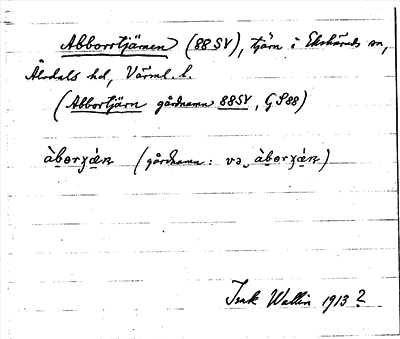 Abborrtjärnen (88 SV), tjärn i Ekshärads sn,
Älvdals hd, Värml. l.
(Abbortjärn gårdnamn 88SV, GS88)
àbərɟæ̀n (gårdnamn: və, àbərɟæ̀n)
Isak Wallin 1913?